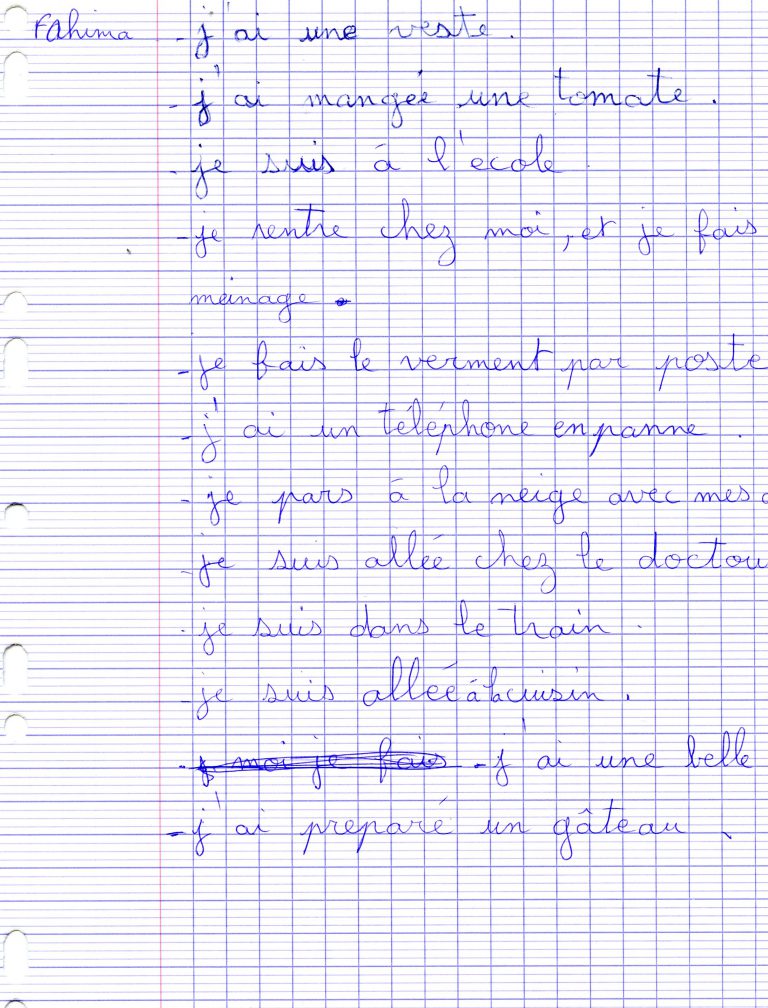 Fahima - j'ai une veste.
- j'ai mangée une tomate.
- je suis à l'école.
- je rentre chez moi, et je fais
meinage.
- je fais le verment par poste
- j'ai un téléphone en panne.
- je pars à la neige avec mes
- je suis allée chez le doctou
- je suis dans le train.
- je suis allée à la cuisin.
- moi je fais - j'ai une belle
- j'ai preparé un gâteau.